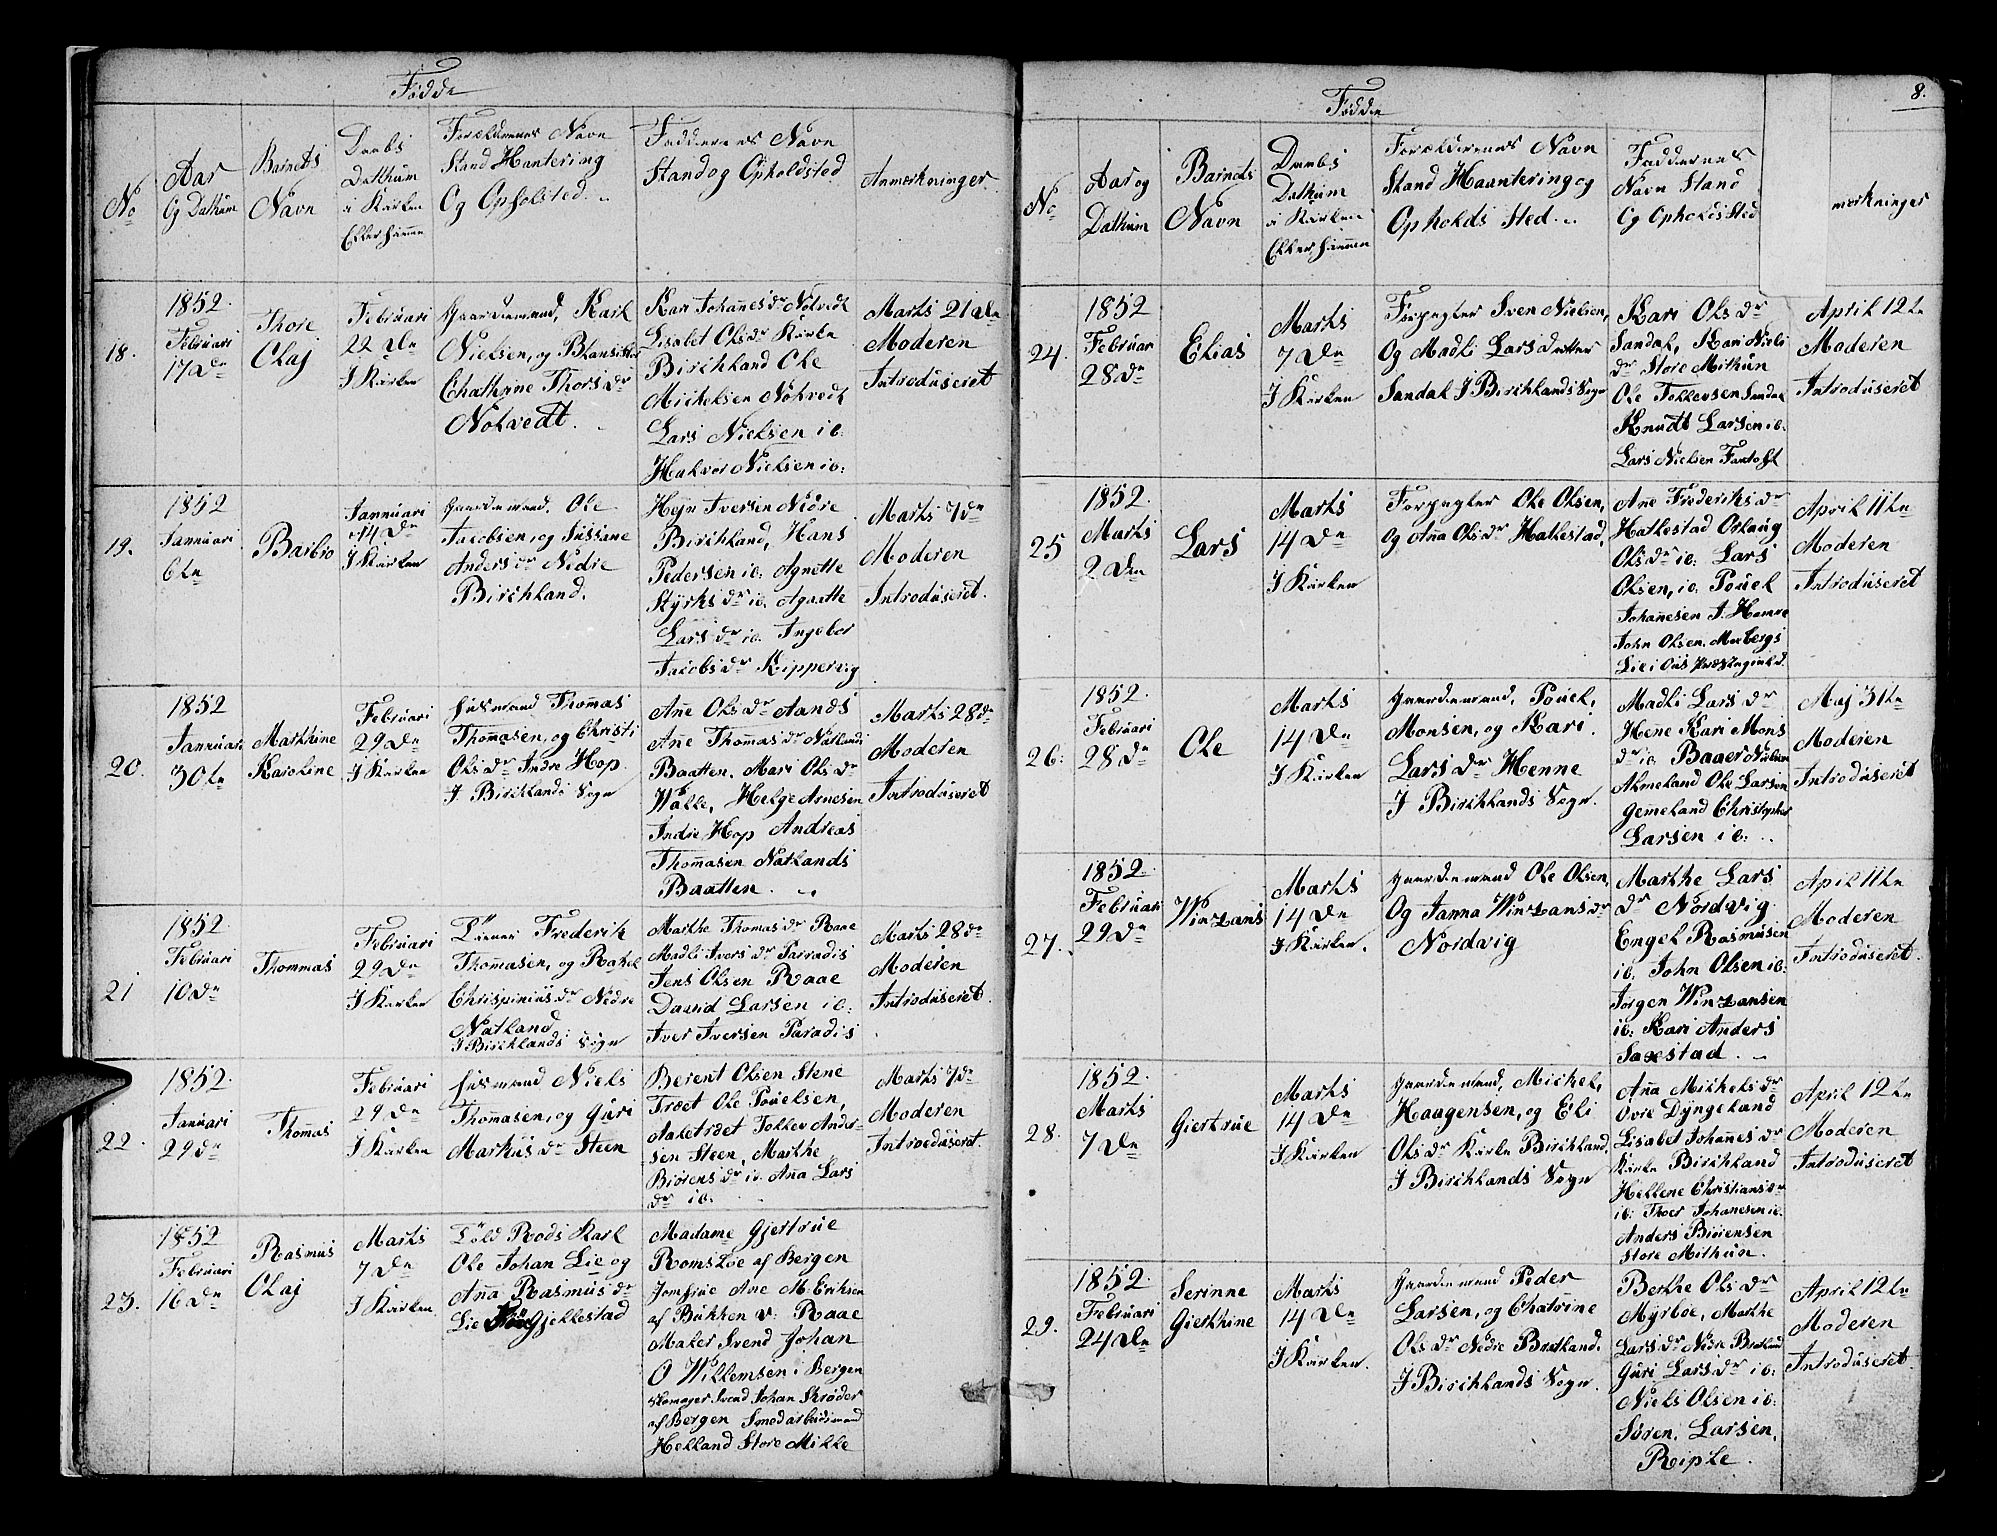 Fødde
No
Aar
Og Dathum
Barnets
Navn
Daabs
Dathum
i Kirken
Eller Hiemme
Forældrenes Navn
Stand Hantering
Og Opholsted
Faddernes Navn
Stand og Opholdsted
Anmerkninger
18.
1852.
Februari
17de
Thore
Olaj
Februari
22 De
I Kirken
Gaardemand, Karl
Nielsen, og
Chathrine Thorsdr
Nøtvedt.
Kari Johanesdr Nøtvedt
Lisabet Olsdr Kirke
Birchland Ole
Michelsen Nøtvedt
Lars Nielsen ib:
Halvor Nielsen ib:
Marts 21 De
Moderen
Introduseret
19.
1852
Jannuari
6te
Baibro
Jannuari
14 De
I Kirken
Gaardemand, Ole
Jacobsen, og Sussane
Andersdr Nedre
Birchland.
Iversen Nedre
Birchland, Hans
Pedersen ib: Agnette
Styrksdr ib. Agnette
Larsdr ib. Ingebor
Jacobsdr Kippervig
Marts 7de
Moderen
Introduseret.
20.
1852
Jannuari
30te
Marthine
Karoline
Februari
29 De
I Kirken
Husmand Thomas
Thommasen, og Christi
Olsdr Indre Hop.
I Birchlands Sogn
Ane Olsdr Sands
Ane Thomasdr Natlands
Baatten. Mari Olsdr
Wålle, Helge Arnesen
Indre Hop Andreas
Thomasen Natlands
Baatten.
Marts 28de
Moderen
Introduseret
21
1852.
Februari
10de
Thommas
Februari
29 De
I Kirken
Frederik
Thomasen, og Rakel
Chrispiniusdr Nedre
Natland
I Birchlands Sogn
Marthe Thomasdr Raae
Madli Iversdr Parradis
Jens Olsen Raae
David Larsen ib:
Iver Iversen Paradis
Marts 28de
Moderen
Introduseret.
22.
1852.
Januari
29de
Thomas
Februari
29 De
I Kirken
Husmand Niels
Thomasen, og Guri
Markusdr Steen
Berent Olsen Stene
Træet Ole Pouelsen,
Aaletræet Tollev Ander-
sen Steen, Marthe
Biørensdr ib. Ana Lars
dr ib.
Marts 7de
Moderen
Introeduseret.
23.
1852
Februari
16 De
Rasmus
Olaj
Marts
7 De
I Kirken.
Karl
Ole Johan Lie og
Ana Rasmusdr
Lie Gjellestad
Madame Gjertrue
Romsløe af Bergen
Jomfrue Ane M. Eriksen
af Bukken v: Raae
Maler Svend Johan
O Willemsen i Bergen
Skomager Svend Johan Skrøder
af Bergen Smedarbeidsmand
Helland Store Milde
Fødde
8.
No
Aar og
Dathum
Barnets
Navn
Daabs
Dathum
i Kirken
Eller Hiemme
Forælderenes Navn
Stand Haantering og
Opholds Sted.
Faddernes
Navn Stand
Og Opholds Sted
mærkninger
24.
1852
Februari
28de
Elias
Marts
7 De
I Kirken
Forpagter Sven Nielsen,
Og Madli Larsdatter
Sandal I Birchlands Sogn
Kari Olsdr
Sandal, Kari Niels
dr Store Mithun
Ole Tollevsen Sandal
Knudt Larsen ib:
Lars Nielsen Fantoft
April 12te
Moderen
Introduseret
25
1852.
Marts
2 Den
Lars
Marts
14 De
I Kirken
Forpagter Ole Olsen,
Og Ana Olsdr Hatlestad,
Ane Frederiksdr
Hatlestad Orlaug
Olsdr ib: Lars
Olsen, ib: Pouel
Johanesen I. Hamre
John Olsen
April 11te
Moderen
Introduseret
26.
1852.
Februari
28de
Ole
Marts
14 De
I Kirken
Gaardemand, Pouel,
Monsen, og Kari.
Larsdr Henne
I Birchlands Sogn.
Madli Larsdr
Henne Kari Mons
dr ib.
Ole Larsen
Gemeland Christopher
Larsen ib:
Maj 31te
Moderen
Introduseret
27.
1852.
Februari
29de
Winzans
Marts
14 De
I Kirken.
Gaardemand Ole Olsen,
Og Janna Winzansdr
Nordvig
Marthe Lars
dr Nordvig
Engel Rasmusen
ib. John Olsen ib:
Jorgen Winzansen
ib: Kari Anders
Saxestad.
April 11te
Moderen
Introduseret.
28.
1852.
Marts
7 De
Giertrue
Marts
14 De
I Kirken
Gaardemand, Michel,
Haagensen, og Eli
Olsdr Kirke Birchland.
I Birchlands Sogn
Ana Michelsdr
Øvre Dyngeland
Lisabet Johannesdr
Kirke Birchland
Hellene Christiansdr
ib: Thoer Johanesen ib.
Anders Biørensen
Store Mithun.
April 12te
Moderen
Introduseret
29.
1852.
Februari
24 De
Serinne
Gierthine
Marts
14 De
I Kirken.
Gaardemand Peder
Larsen, og Chatrine
Olsdr Nedre Birkeland.
I Birchlands Sogn.
Berthe Olsdr
Myrboe, Marthe
Larsdr Nedre Birkeland
Guri Larsdr ib:
Niels Olsen ib:
Søren. Larsen,
Riple.
April 12te
Moderen
Introduseret.